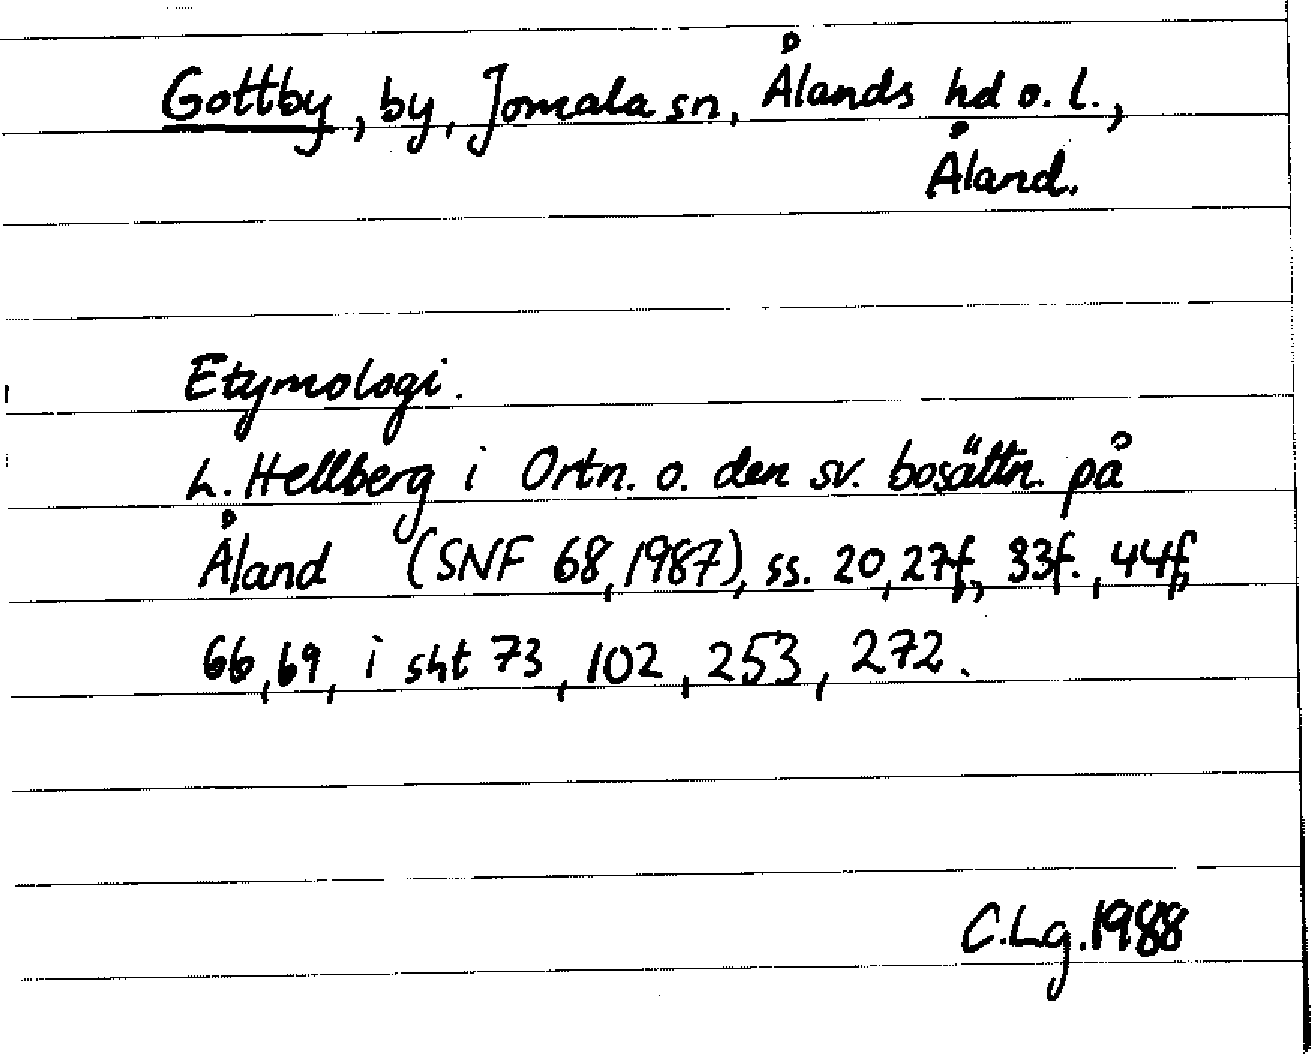 Gottby, by, Jomala sn, Ålands hd o. l.,
Åland.
Etymologi.
L. Hellberg i Ortn. o. den sv. bosättn. på
Åland (SNF 68, 1987), ss. 20, 27f, 33f., 44f,
66, 69, i sht 73, 102, 253, 272.
C.Lg. 1988